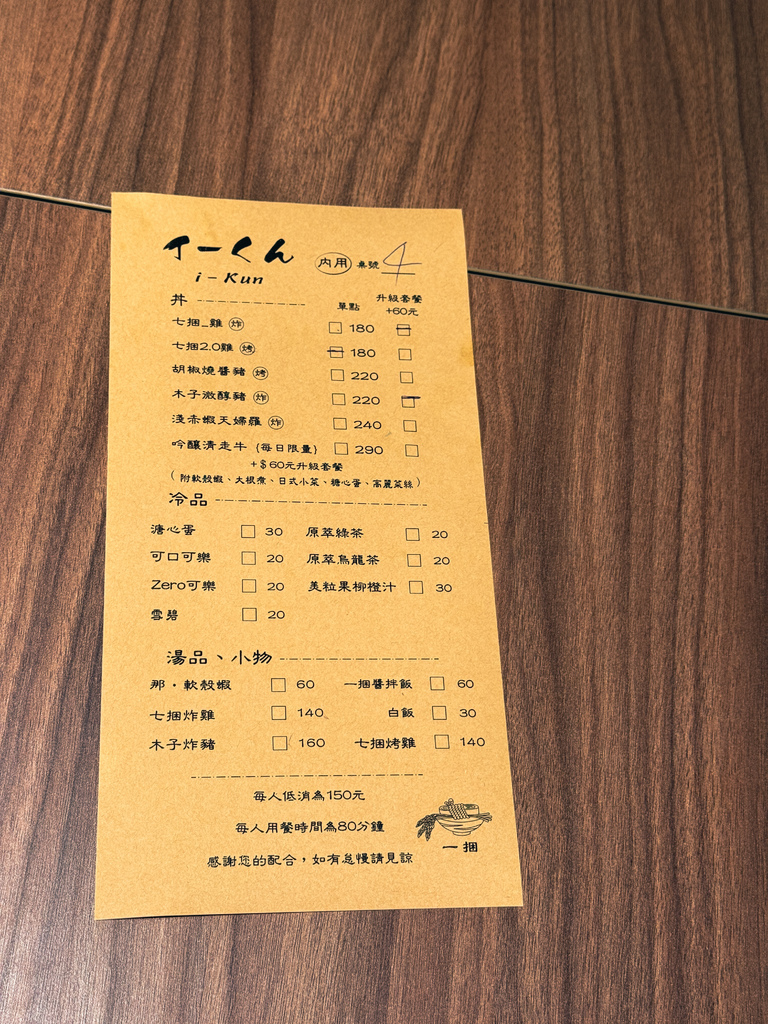 いーくん
i-Kun
內用 桌號 4
丼 單點 升級套餐
+60元
七捆_雞 炸 180
七捆2.0雞 烤 180
胡椒燒醬豬 烤 220
木子微醇豬 炸 220
淺赤蝦天婦羅 炸 240
吟釀清走牛 (每日限量) 290
+$60元升級套餐
(附軟殼蝦、大根煮、日式小菜、糖心蛋、高麗菜絲)
冷品
溏心蛋 30 原萃綠茶 20
可口可樂 20 原萃烏龍茶 20
Zero可樂 20 美粒果柳橙汁 30
雪碧 20
湯品、小物
那·軟殼蝦 60 一捆醬拌飯 60
七捆炸雞 140 白飯 30
木子炸豬 160 七捆烤雞 140
每人低消為150元
每人用餐時間為80分鐘
感謝您的配合,如有怠慢請見諒
一捆